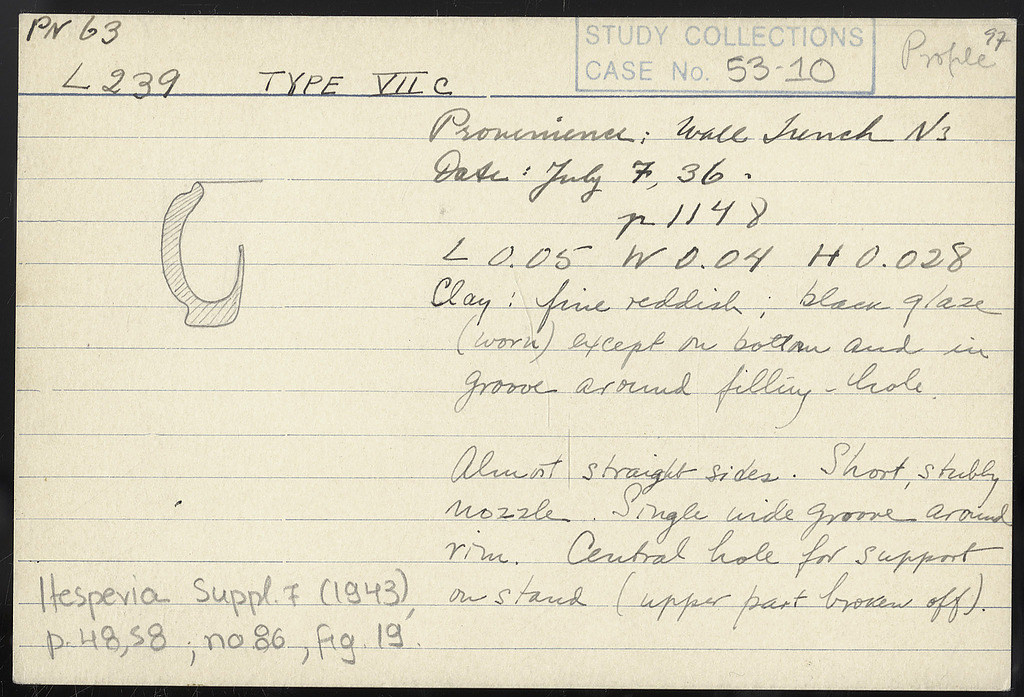 PN 63
STUDY COLLECTIONS
CASE No. 53-10
97
Profile
L 239 TYPE VII C
Provenience: Wall Trench N3
Date: July 7, 36.
p 1148
L 0.05 W 0.04 H 0.028
Clay: fine reddish; black glaze
(worn) except on bottom and in
groove around filling-hole.
Almost straight sides. Short, stubby
nozzle. Single wide groove around
rim. Central hole for support
on stand (upper part broken off).
Hesperia Suppl. 7 (1943),
p. 48, 58; no 86, fig. 19.